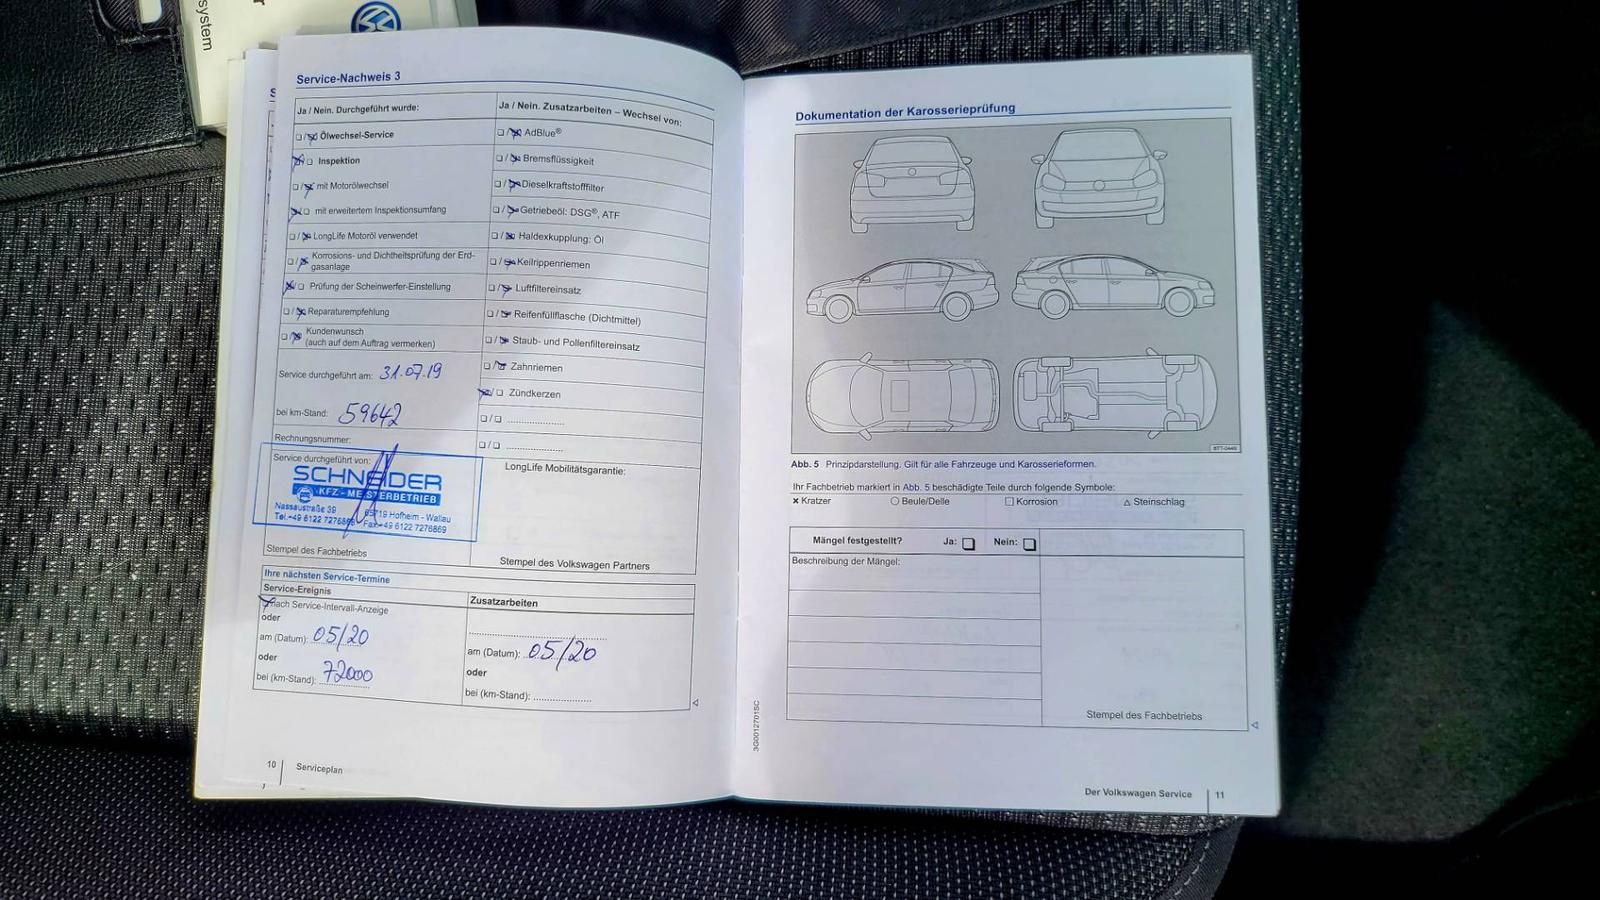 system
Service-Nachweis 3
Ja / Nein. Durchgeführt wurde:
Ölwechsel-Service
Inspektion
mit Motorölwechsel
mit erweitertem Inspektionsumfang
LongLife Motoröl verwendet
Korrosions- und Dichtheitsprüfung der Erd-
gasanlage
Prüfung der Scheinwerfer-Einstellung
Reparaturempfehlung
Kundenwunsch
(auch auf dem Auftrag vermerken)
Service durchgeführt am: 31.07.19
bei km-Stand: 59642
Rechnungsnummer:
Service durchgeführt von:
SCHNEIDER
KFZ.-MEISTERBETRIEB
Nassaustraße 39 65719 Hofheim - Wallau
Tel.+49 6122 7276868 Fax+49 6122 7276869
Stempel des Fachbetriebs
Ja / Nein. Zusatzarbeiten – Wechsel von:
AdBlue®
Bremsflüssigkeit
Dieselkraftstofffilter
Getriebeöl: DSG®, ATF
Haldexkupplung: Öl
Keilrippenriemen
Luftfiltereinsatz
Reifenfüllflasche (Dichtmittel)
Staub- und Pollenfiltereinsatz
Zahnriemen
Zündkerzen
LongLife Mobilitätsgarantie:
Stempel des Volkswagen Partners
Ihre nächsten Service-Termine
Service-Ereignis
nach Service-Intervall-Anzeige
oder
am (Datum): 05/20
oder
bei (km-Stand): 72000
Zusatzarbeiten
am (Datum): 05/20
oder
bei (km-Stand):
10 Serviceplan
Dokumentation der Karosserieprüfung
Abb. 5 Prinzipdarstellung. Gilt für alle Fahrzeuge und Karosserieformen.
Ihr Fachbetrieb markiert in Abb. 5 beschädigte Teile durch folgende Symbole:
× Kratzer ○ Beule/Delle □ Korrosion △ Steinschlag
Mängel festgestellt? Ja: Nein:
Beschreibung der Mängel:
Stempel des Fachbetriebs
3G0012701SC
Der Volkswagen Service 11